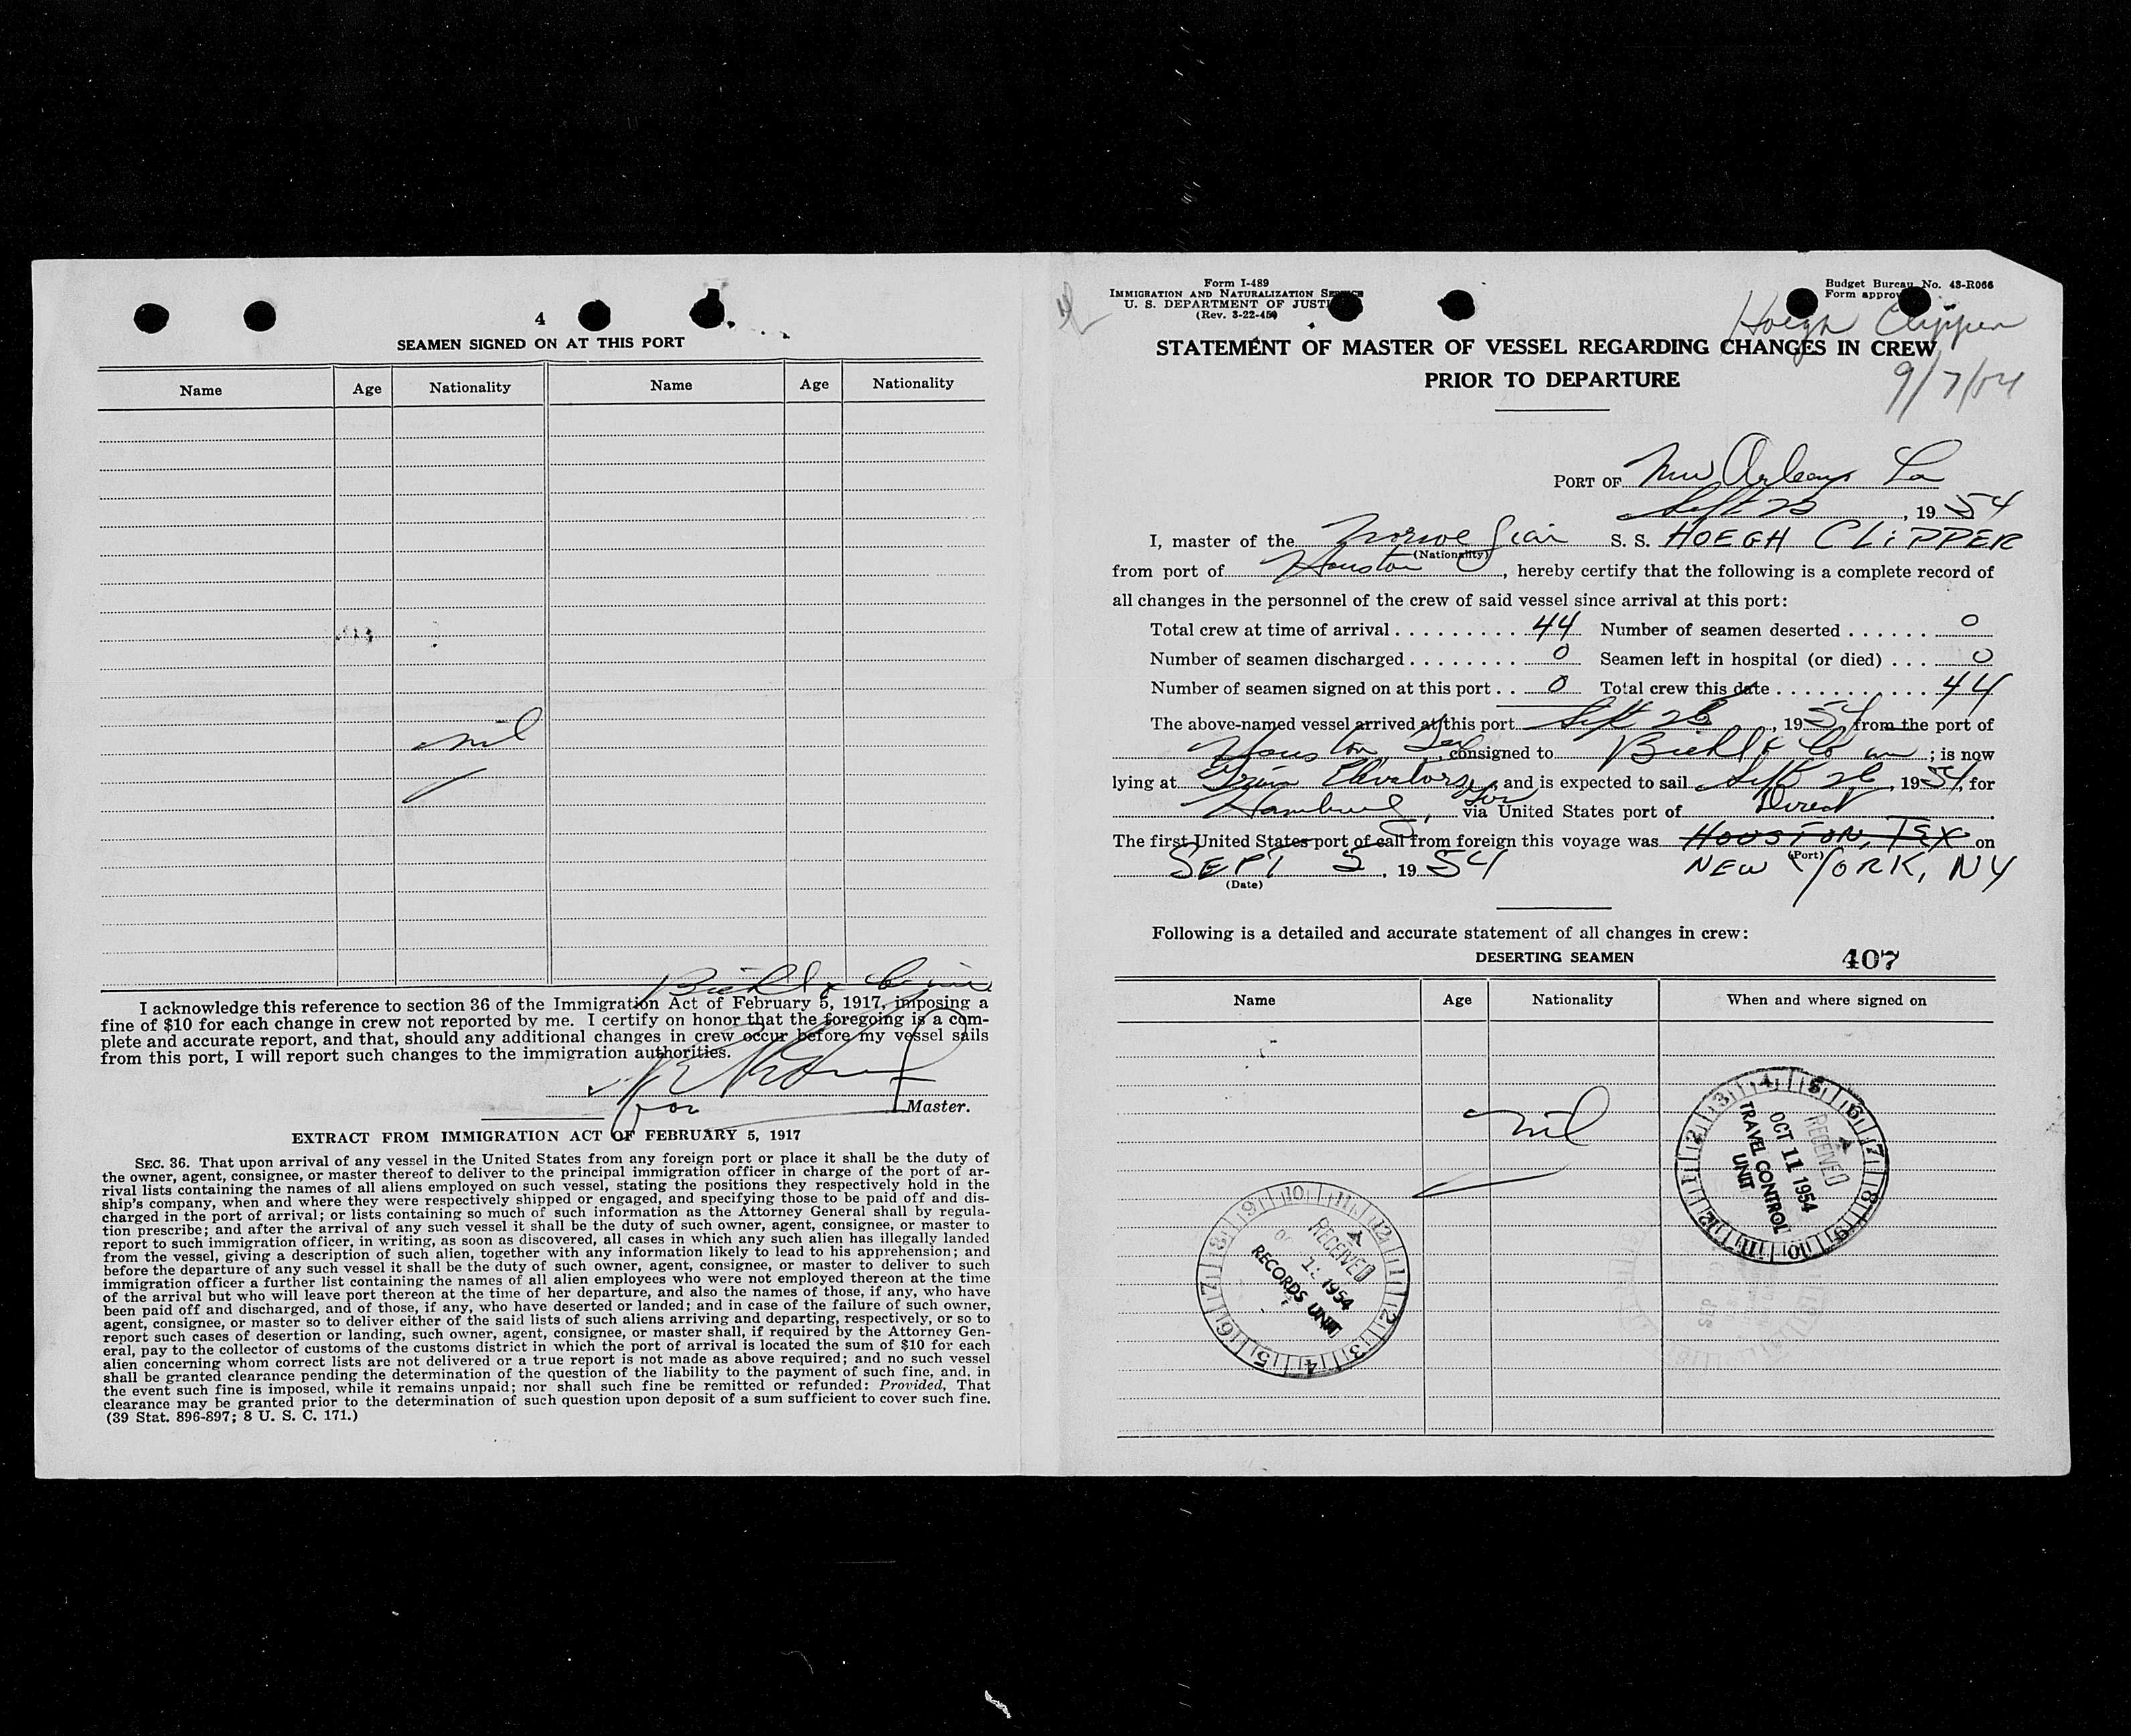 4
SEAMEN SIGNED ON AT THIS PORT
Name Age Nationality Name Age Nationality
nil
Biehl & Co inc
I acknowledge this reference to section 36 of the Immigration Act of February 5, 1917, imposing a
fine of $10 for each change in crew not reported by me. I certify on honor that the foregoing is a com-
plete and accurate report, and that, should any additional changes in crew occur before my vessel sails
from this port, I will report such changes to the immigration authorities.
for Master.
EXTRACT FROM IMMIGRATION ACT OF FEBRUARY 5, 1917
SEC. 36. That upon arrival of any vessel in the United States from any foreign port or place it shall be the duty of
the owner, agent, consignee, or master thereof to deliver to the principal immigration officer in charge of the port of ar-
rival lists containing the names of all aliens employed on such vessel, stating the positions they respectively hold in the
ship's company, when and where they were respectively shipped or engaged, and specifying those to be paid off and dis-
charged in the port of arrival; or lists containing so much of such information as the Attorney General shall by regula-
tion prescribe; and after the arrival of any such vessel it shall be the duty of such owner, agent, consignee, or master to
report to such immigration officer, in writing, as soon as discovered, all cases in which any such alien has illegally landed
from the vessel, giving a description of such alien, together with any information likely to lead to his apprehension; and
before the departure of any such vessel it shall be the duty of such owner, agent, consignee, or master to deliver to such
immigration officer a further list containing the names of all alien employees who were not employed thereon at the time
of the arrival but who will leave port thereon at the time of her departure, and also the names of those, if any, who have
been paid off and discharged, and of those, if any, who have deserted or landed; and in case of the failure of such owner,
agent, consignee, or master so to deliver either of the said lists of such aliens arriving and departing, respectively, or so to
report such cases of desertion or landing, such owner, agent, consignee, or master shall, if required by the Attorney Gen-
eral, pay to the collector of customs of the customs district in which the port of arrival is located the sum of $10 for each
alien concerning whom correct lists are not delivered or a true report is not made as above required; and no such vessel
shall be granted clearance pending the determination of the question of the liability to the payment of such fine, and, in
the event such fine is imposed, while it remains unpaid; nor shall such fine be remitted or refunded: Provided, That
clearance may be granted prior to the determination of such question upon deposit of a sum sufficient to cover such fine.
(39 Stat. 896-897; 8 U. S. C. 171.)
Form I-489
IMMIGRATION AND NATURALIZATION SERVICE
U. S. DEPARTMENT OF JUSTI
(Rev. 3-22-45)
Budget Bureau No. 43-R066
Form approv
Hoegh Clipper
STATEMENT OF MASTER OF VESSEL REGARDING CHANGES IN CREW
PRIOR TO DEPARTURE
9/7/54
PORT OF New Orleans La
Sept 25, 1954
I, master of the Norwegian S. S. HOEGH CLIPPER
(Nationality)
from port of Houston, hereby certify that the following is a complete record of
all changes in the personnel of the crew of said vessel since arrival at this port:
Total crew at time of arrival 44 Number of seamen deserted 0
Number of seamen discharged 0 Seamen left in hospital (or died) 0
Number of seamen signed on at this port 0 Total crew this date 44
The above-named vessel arrived at this port Sept, 1954 from the port of
Houston Tex, consigned to Biehl & Co inc; is now
lying at Grain Elevators, and is expected to sail Sept 26, 1954, for
Hamburg, Ger via United States port of Direct
The first United States port of call from foreign this voyage was HOUSTON, TEX on
(Port)
SEPT 2, 1954 NEW YORK, NY
(Date)
Following is a detailed and accurate statement of all changes in crew:
DESERTING SEAMEN 407
Name Age Nationality When and where signed on
nil
RECEIVED
OCT 11 1954
TRAVEL CONTROL
UNIT
RECEIVED
1954
RECORDS UNIT
SEP